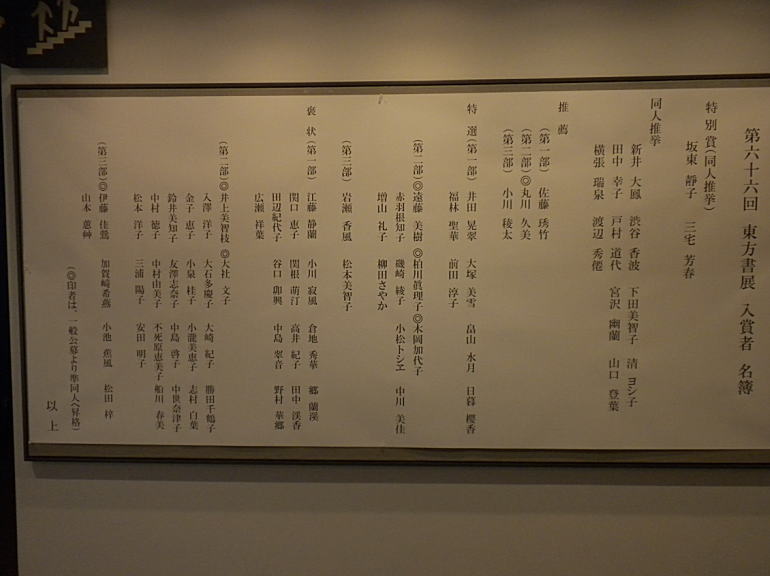 第六十六回 東方書展 入賞者 名簿
特別賞(同人推挙)
坂東 靜子 三宅 芳春
同人推挙
新井 大鳳 渋谷 香波 下田美智子 清 ヨシ子
田中 幸子 戸村 道代 宮沢 幽蘭 山口 登葉
横張 瑞泉 渡辺 秀僊
推薦
(第一部) 佐藤 琇竹
(第二部)◎丸川 久美
(第三部) 小川 稜太
特選(第一部) 井田 晃翠 大塚 美雪 畠山 水月 日暮 櫻香
福林 聖華 前田 淳子
(第二部)◎遠藤 美樹 ◎柏川眞理子 ◎木岡加代子
赤羽根知子 磯崎 綾子 小松トシヱ 中川 美佳
増山 礼子 柳田さやか
(第三部) 岩瀬 香風 松本美智子
褒状(第一部) 江藤 静蘭 小川 寂風 倉地 秀華 郷 蘭渓
関口 恵子 関根 萌汀 高井 紀子 田中 渓香
田辺紀代子 谷口 卯興 中島 翠音 野村 華郷
広瀬 祥葉
(第二部)◎井上美智枝 ◎大社 文子
入澤 洋子 大石多慶子 大崎 紀子 勝田千鶴子
金子 恵子 小泉 桂子 小瀧美恵子 志村 白葉
鈴井美知子 友澤志奈子 中島 啓子 中世奈津子
中村 徳子 中村由美子 不死原恵美子 船川 春美
松本 洋子 三浦 陽子 安田 明子
(第三部)◎伊藤 佳鶯 加賀崎希燕 小池 蕉風 松田 梓
山本 蕙艸
(◎印者は、一般公募より準同人へ昇格)
以上